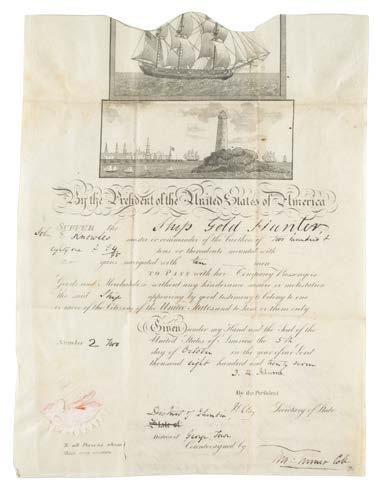 By the President of the United States of America
SUFFER the Ship Gold Hunter,
John Knowles master or commander of the burthen of two hundred &
eighty one & 64/95 tons or thereabouts mounted with
guns navigated with ten men
TO PASS with her Company Passengers
Goods and Merchandize without any hindrance seisure or molestation
the said Ship appearing by good testimony to belong to one
or more of the Citizens of the United States and to him or them only
Given under my Hand and the Seal of the
United States of America the 5th
Number 2 Two
day of October in the year of our Lord
thousand eight hundred and twenty seven
J. Q. Adams
By the President
H Clay Secretary of State
District of
District of George Town
Countersigned by
To all Persons whom
these may concern
Thos. Turner Coll